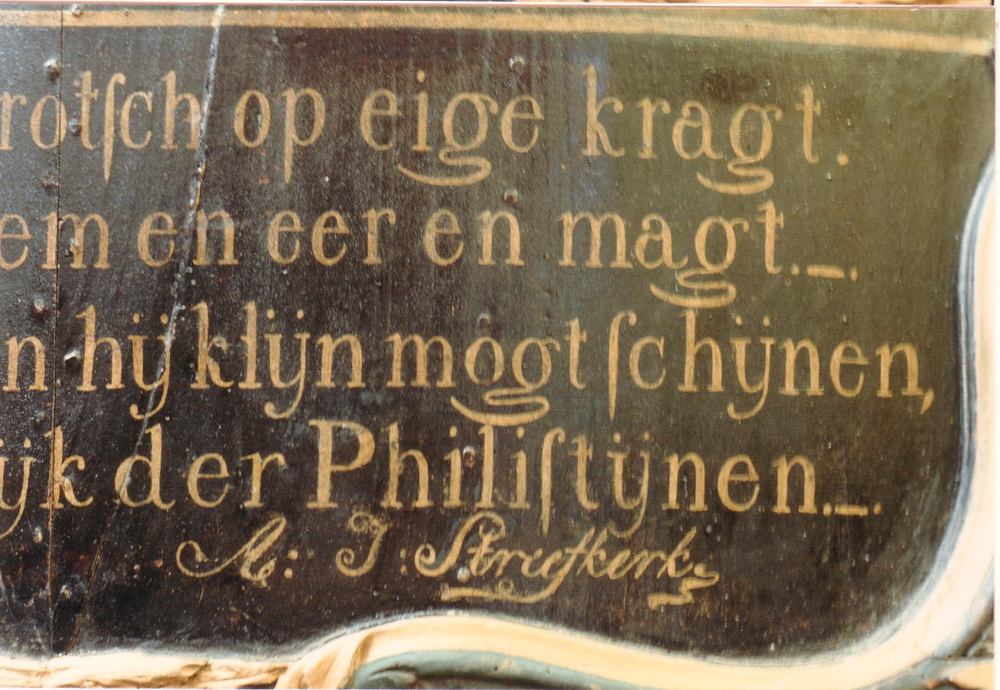 rotſch op eige kragt.
em en eer en magt._.
n hÿ klÿn mogt ſchÿnen,
ÿk der Philiſtÿnen._.
A: J: Streefkerk